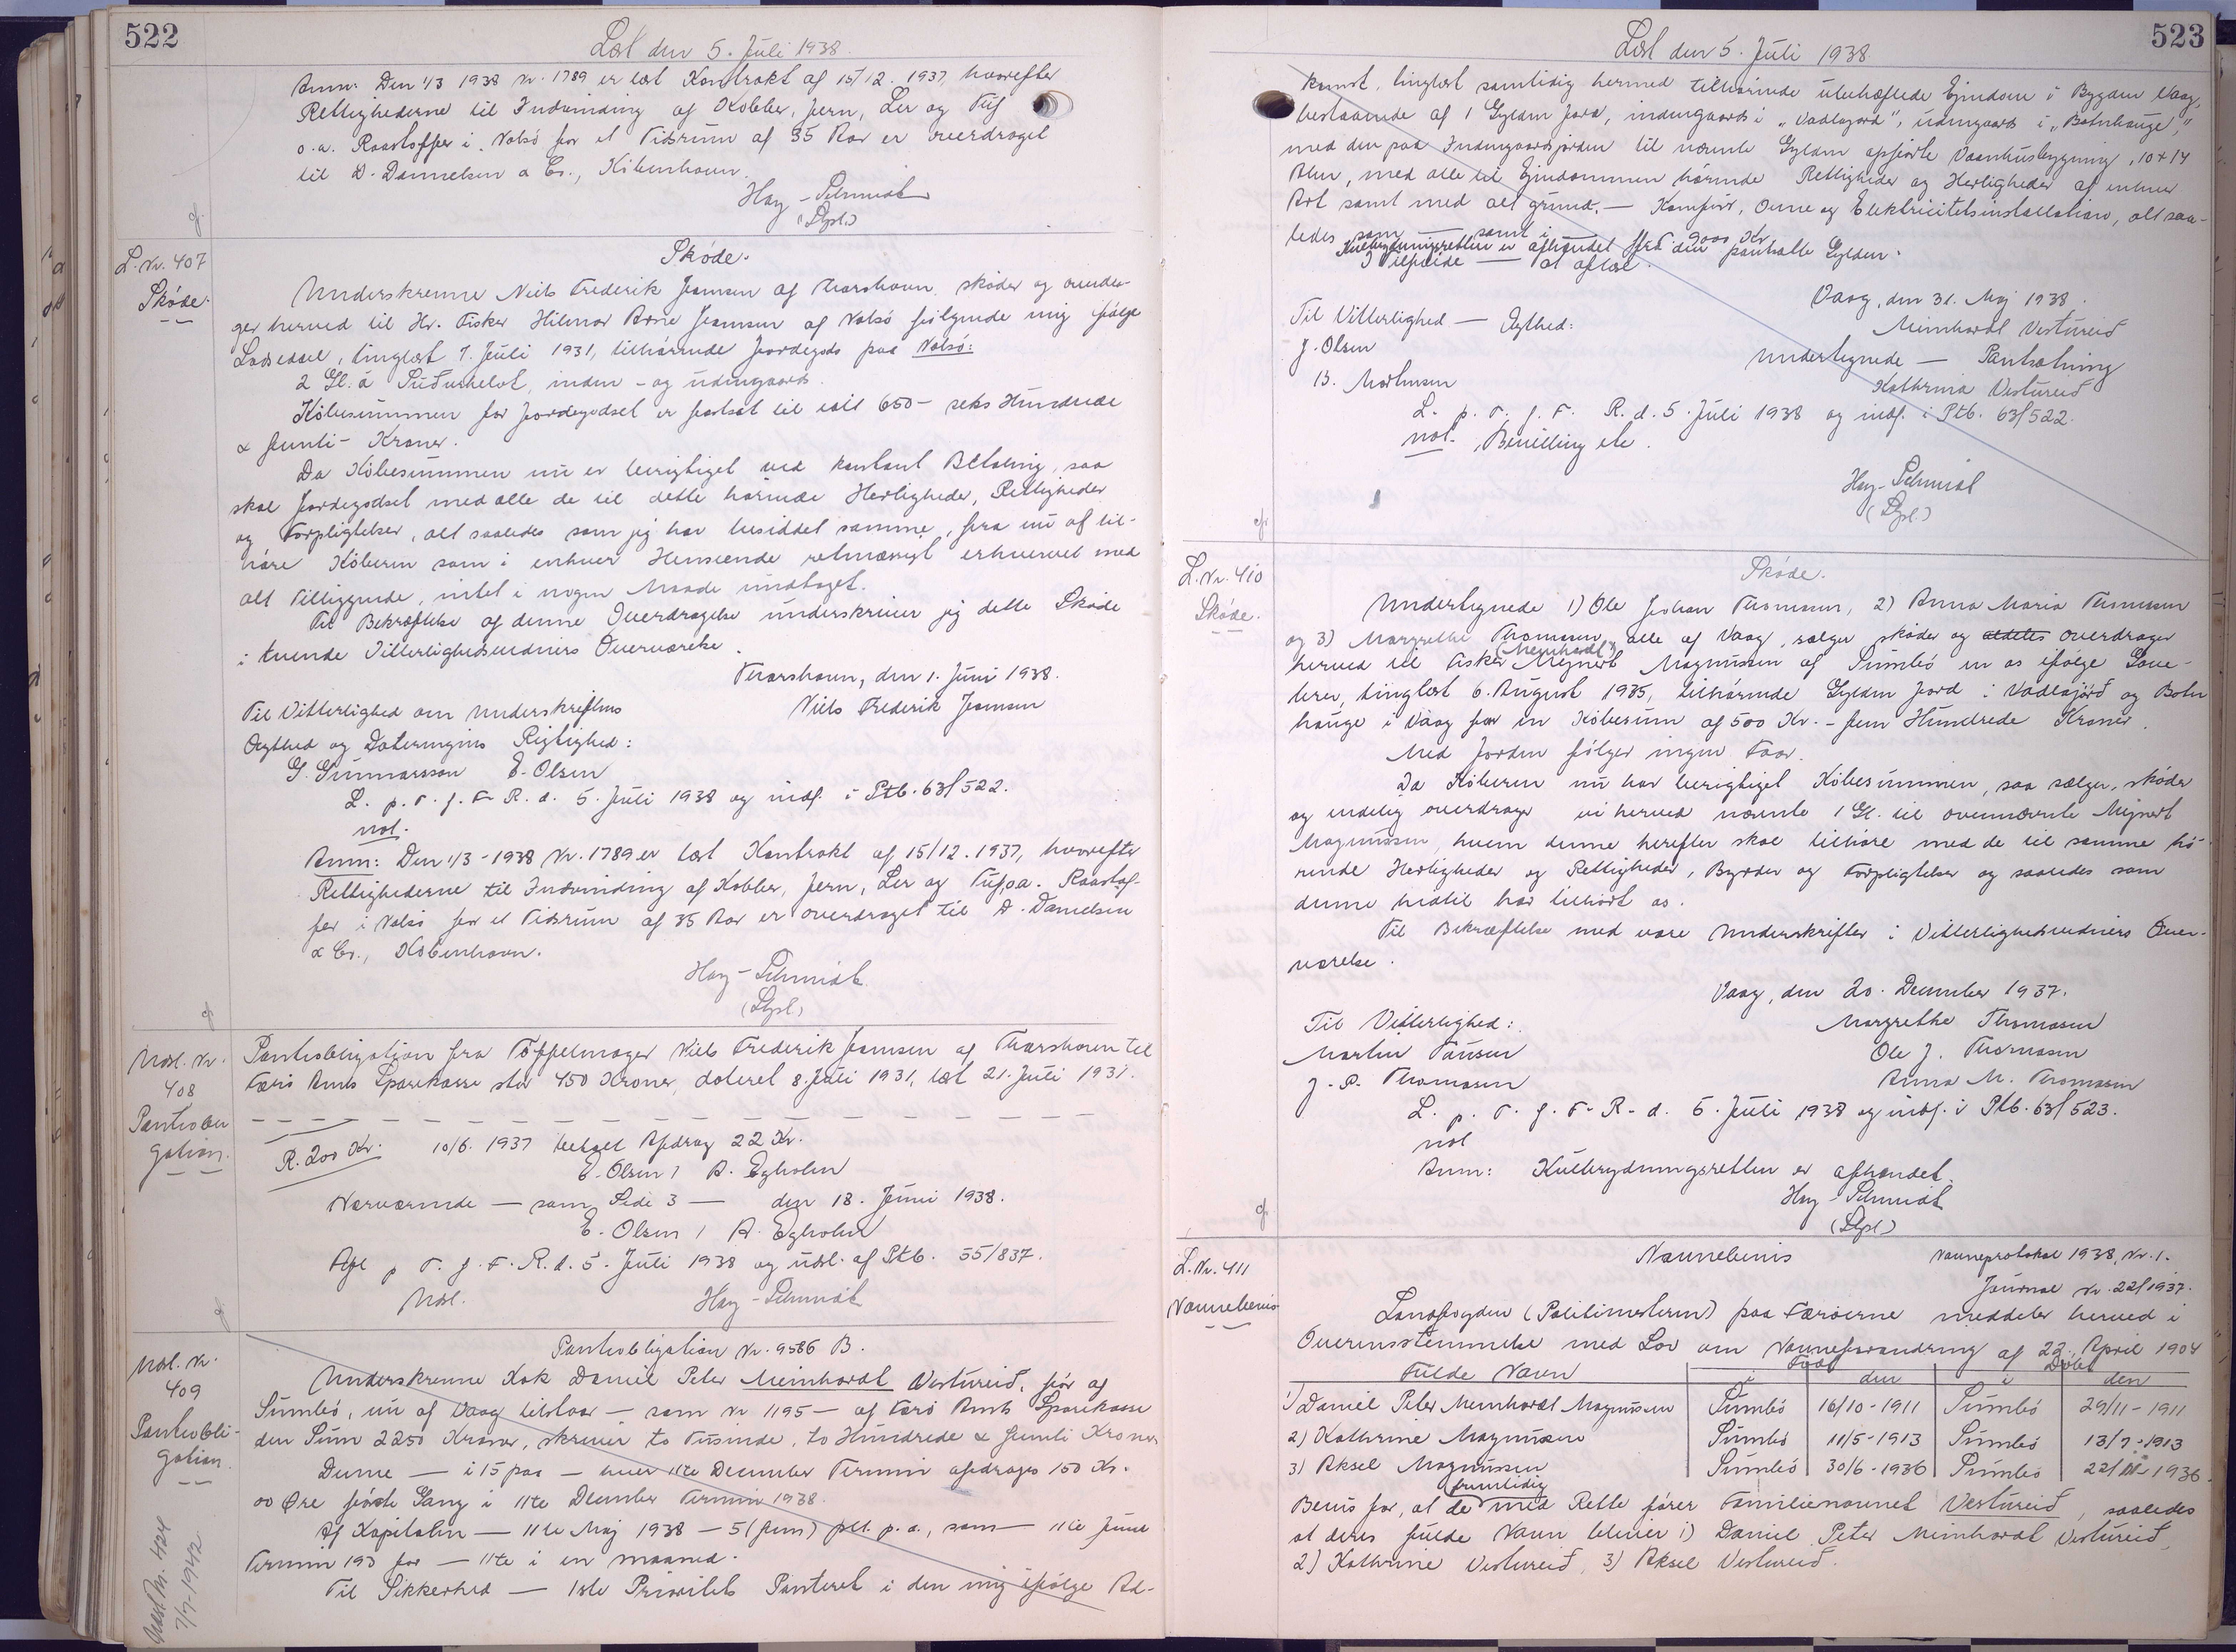 522
Læst den 5. Juli 1938.
Anm: Den 1/3 1938 Nr. 1789 er læst Kontrakt af 15/12. 1937, hvorefter
Rettighederne til Indvinding af Kobber, Jern, Ler og Tuf
o.a. Raastoffer i Nolsö for et Tidsrum af 35 Aar er overdraget
til D. Dannelsen & Co., Köbenhavn.
Hay-Schmidt
(Stpl.)
L. Nr. 407
Sköde.
Sköde.
Underskrevne Niels Frederik Joensen af Thorshavn sköder og overdra-
ger herved til Hr. Fisker Hilmar Arne Joensen af Nolsö fölgende mig ifölge
Lodseddel, tinglæst 7. Juli 1931, tilhörende Jordegods paa Nolsö:
2 Gl. á Suðurhelvt, inden- og udengaards.
Köbesummen for Jordegodset er fastsat til ialt 650 - seks Hundrede
& femti - Kroner.
Da Köbesummen nu er berigtiget ved kontant Betaling, saa
skal Jordegodset med alle de til dette hörende Herligheder, Rettigheder
og Forpligtelser, alt saaledes som jeg har besiddet samme, fra nu af til-
höre Köberen som i enhver Henseende retmæssigt erhvervet med
alt Tilliggende, intet i nogen Maade undtaget.
Til Bekræftelse af denne Overdragelse underskriver jeg dette Sköde
i tvende Vitterlighedsvidners Overværelse.
Thorshavn, den 1. Juni 1938.
Til Vitterlighed om Underskriftens
Niels Frederik Joensen
Ægthed og Dateringens Rigtighed:
G. Gunnarsson E. Olsen
L. p. T. f. F. R. d. 5. Juli 1938 og indf. i Ptb. 63/522.
not.
Anm: Den 1/3-1938 Nr. 1789 er læst Kontrakt af 15/12. 1937, hvorefter
Rettighederne til Indvinding af Kobber, Jern, Ler og Tuf, o.a. Raastof-
fer i Nolsö for et Tidsrum af 35 Aar er overdraget til D. Danielsen
& Co., Köbenhavn.
Hay-Schmidt
(Stpl)
Udsl. Nr.
408
Pantobli
gation.
Pantobligation fra Töffelmager Niels Frederik Joensen af Thorshavn til
Færö Amts Sparekasse stor 450 Kroner, dateret 8. Juli 1931, læst 21. Juli 1931.
R. 200 Kr. 10/6. 1937 betalt Afdrag 22 Kr.
E. Olsen / A. Egholm
Nærværende — som Side 3 — den 18. Juni 1938.
E. Olsen / A. Egholm
Afl p T. f. F. R. d. 5. Juli 1938 og udsl. af Ptb. 55/837.
Udsl. Hay-Schmidt
Udsl. Nr.
409
Pantobli-
gation.
7/7-1942
Pantobligation Nr. 9586 B.
Underskrevne Kok Daniel Peter Meinhardt Vestureið, för af
Sumbö, nu af Vaag tilstaar — som Nr 1195 — af Færö Amts Sparekasse
den Sum 2250 Kroner, skriver to Tusinde, to Hundrede & femti Kroner
Denne — i 15 paa — hver 11te December Termin afdrages 150 Kr.
00 Øre første Gang i 11te December Termin 1938.
Af Kapitalen — 11te Maj 1938 — 5 (fem) pct. p.a., som — 11te Juni
Termin 193 for — 11te i en maaned.
Til Sikkerhed — 1ste Prioritets Panteret i den mig ifölge Ad-
523
Læst den 5. Juli 1938.
komst, tinglæst samtidig hermed tilhörende ubehæftede Ejendom i Bygden Vaag,
bestaaende af 1 Gylden Jord, indengaards i "Vadlagørd", udengaards i "Botnhauge",
med den paa Indengaardsjorden til nævnte Gylden opförte Vaanhusbygning, 10 x 14
Alen, med alle til Ejendommen hörende Rettigheder og Herligheder af enhver
Art samt med alt grund. — Komfur, Ovne og Elektricitetsinstallation, alt saa-
ledes som — samt i — 9000 Kr
Kulbrydningsretten er afhændet fra den pantsatte Gylden.
I Tilfælde — at aflæs.
Vaag, den 31. Maj 1938.
Til Vitterlighed — Ægthed:
Meinhardt Vestureið
J. Olsen
Undertegnede — Pantsætning
B. Mortensen
Kathrina Vestureið
L. p. T. f. F. R. d. 5. Juli 1938 og indf. i Ptb. 63/522.
not. Bevilling etc.
Hay-Schmidt
(Stpl.)
L. Nr. 410
Sköde.
Sköde.
Undertegnede 1) Ole Johan Thomasen, 2) Anna Maria Thomasen
og 3) Margrethe Thomasen, alle af Vaag, sælger sköder og overdrager
(Meinhardt)
herved til Fisker Mejnert Magnussen af Sumbö en os ifölge Love-
brev, tinglæst 6. August 1935, tilhörende Gylden Jord i Vadlajørð og Botn
hauge i Vaag for en Köbesum af 500 Kr. - fem Hundrede Kroner.
Med Jorden fölger ingen Faar.
Da Köberen nu har berigtiget Köbesummen, saa sælger, sköder
og endelig overdrager vi herved nævnte 1 Gl. til ovennævnte Mejnert
Magnussen, hvem denne herefter skal tilhöre med de til samme hö-
rende Herligheder og Rettigheder, Byrder og Forpligtelser og saaledes som
denne hidtil har tilhört os.
Til Bekræftelse med vore Underskrifter i Vitterlighedsvidners Over-
værelse.
Vaag, den 20. December 1937.
Til Vitterlighed:
Margrethe Thomasen
Martin Poulsen
Ole J. Thomasen
J. P. Thomasen
Anna M. Thomasen
L. p. T. f. F. R. d. 5. Juli 1938 og indf. i Ptb. 63/523.
not
Anm: Kulbrydningsretten er afhændet.
Hay-Schmidt
(Stpl)
L. Nr. 411
Navnebevis
Navnebevis
Navneprotokol 1938, Nr. 1.
Journal Nr. 22/1937.
Landfogden (Politimesteren) paa Færøerne meddeler herved i
Overensstemmelse med Lov om Navneforandring af 22. April 1904
Fulde Navn Född Döbt
i den i den
1) Daniel Peter Meinhardt Magnussen Sumbö 16/10-1911 Sumbö 29/11-1911
2) Kathrine Magnussen Sumbö 11/5-1913 Sumbö 13/7-1913
3) Aksel Magnussen Sumbö 30/6-1936 Sumbö 22/ -1936
fremtidig
Bevis for, at de med Rette fører Familienavnet Vestureið, saaledes
at deres fulde Navn bliver 1) Daniel Peter Meinhardt Vestureið,
2) Kathrine Vestureið, 3) Aksel Vestureið.